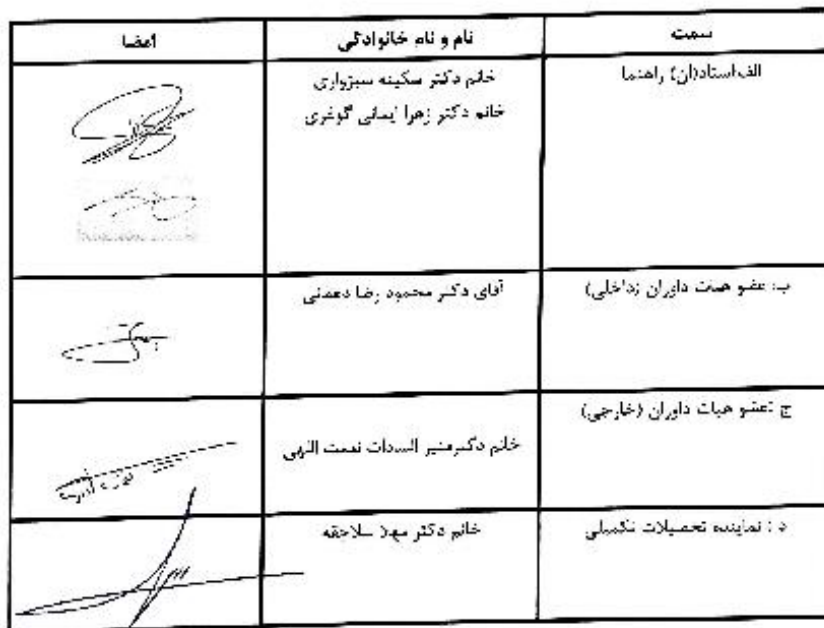 سمت	نام و نام خانوادگی	امضا
الف:استاد(ان) راهنما	خانم دکتر سکینه سبزواری
خانم دکتر زهرا ایمانی گوغری
ب: عضو هیات داوران (داخلی)	آقای دکتر محمود رضا دهقانی
ج :عضو هیات داوران (خارجی)	خانم دکترمنیر السادات نعمت الهی
د : نماینده تحصیلات تکمیلی	خانم دکتر مهلا سلاجقه